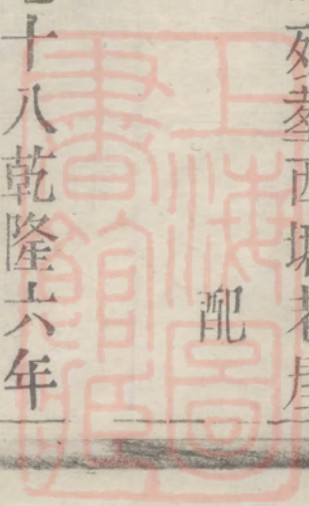 西城老
配
十八乾隆六年
上海圖書館藏